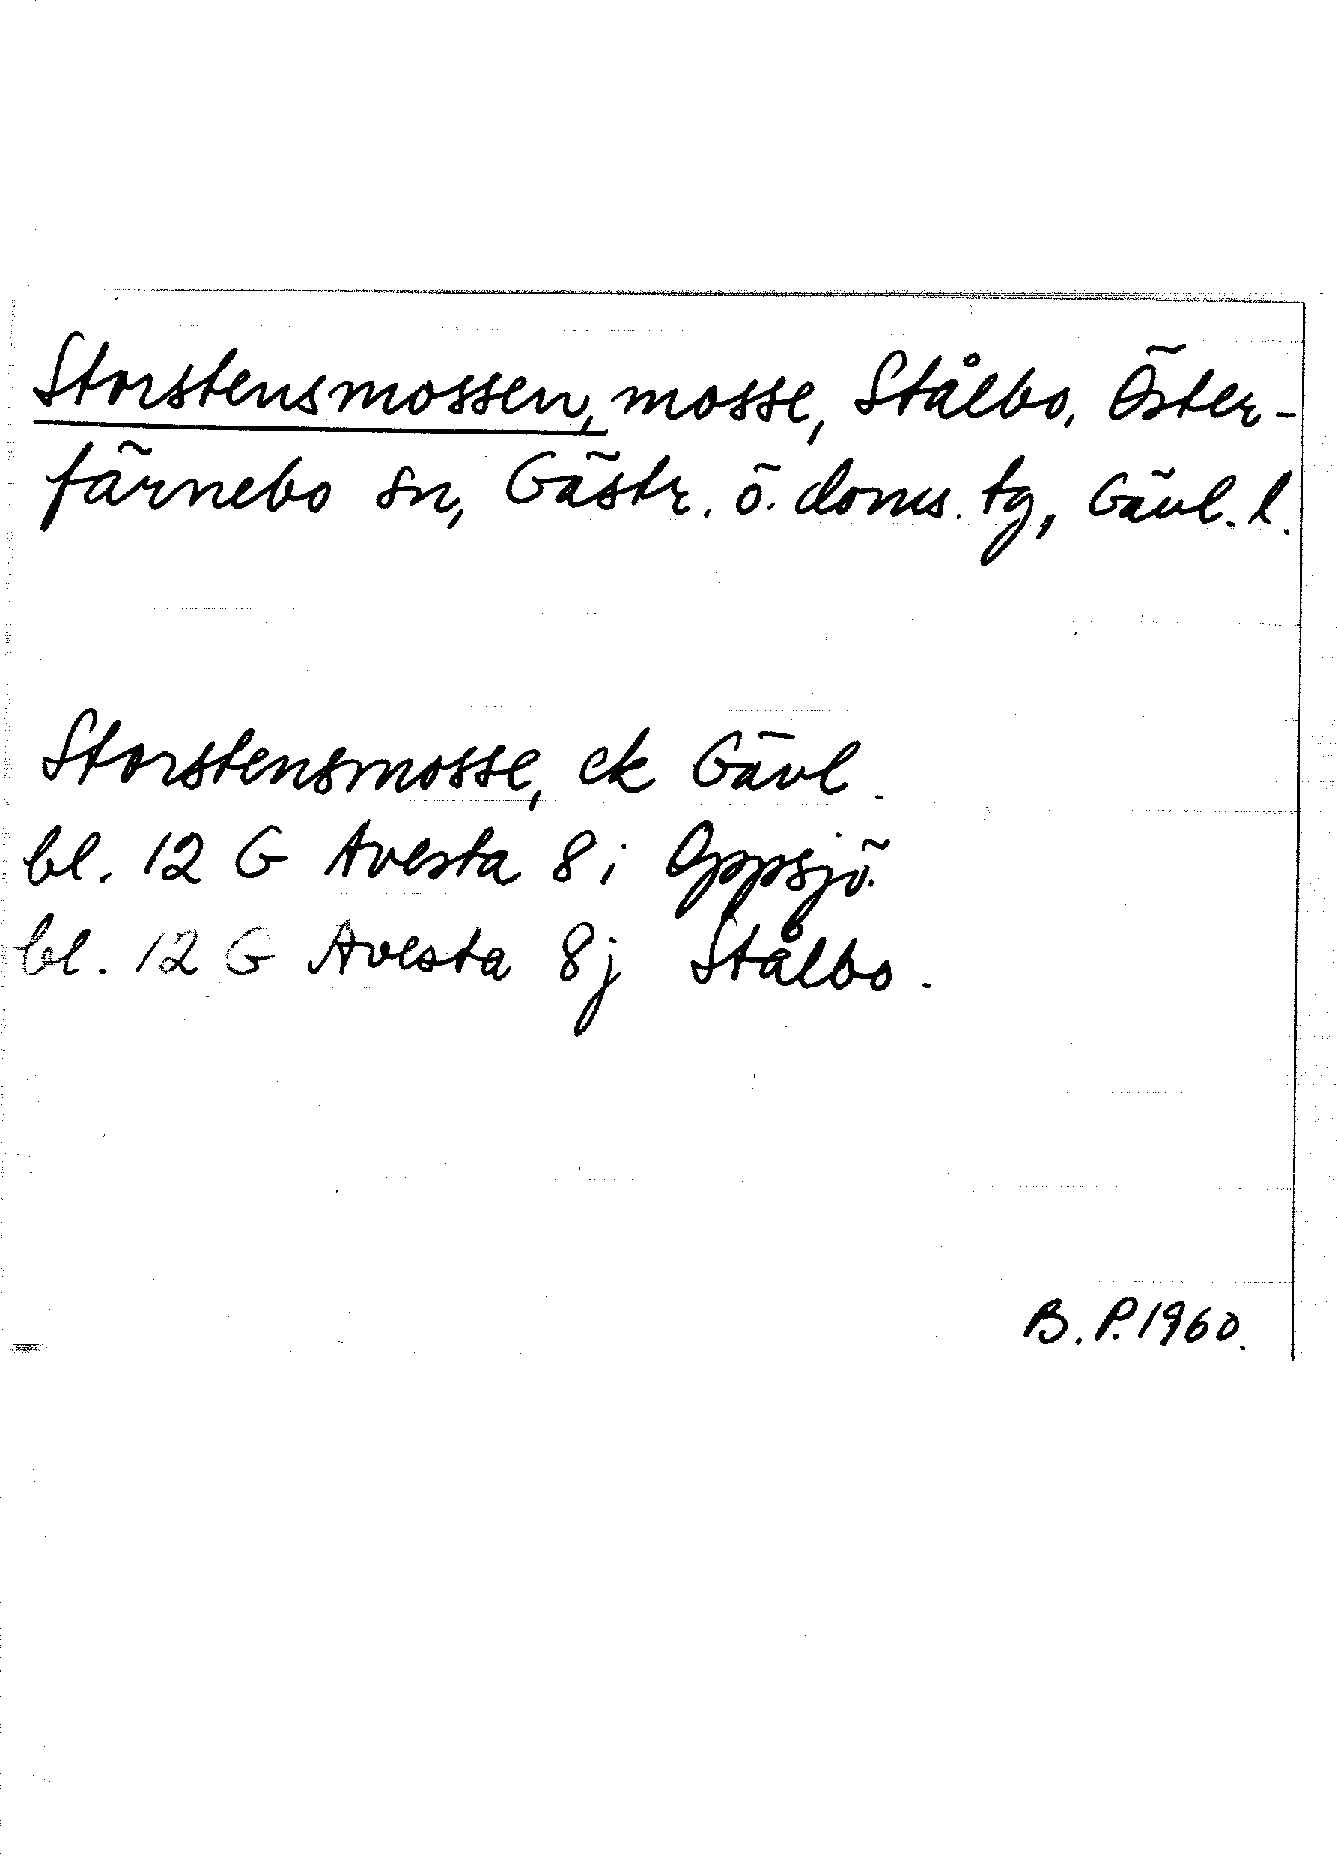 Storstensmossen, mosse, Stålbo, Öster-
färnebo sn, Gästr. ö. doms. tg, Gävl. l.
Storstensmosse, ek Gävl.
bl. 12 G Avesta 8 i Oppsjö.
bl. 12 G Avesta 8j Stålbo.
B. P. 1960.